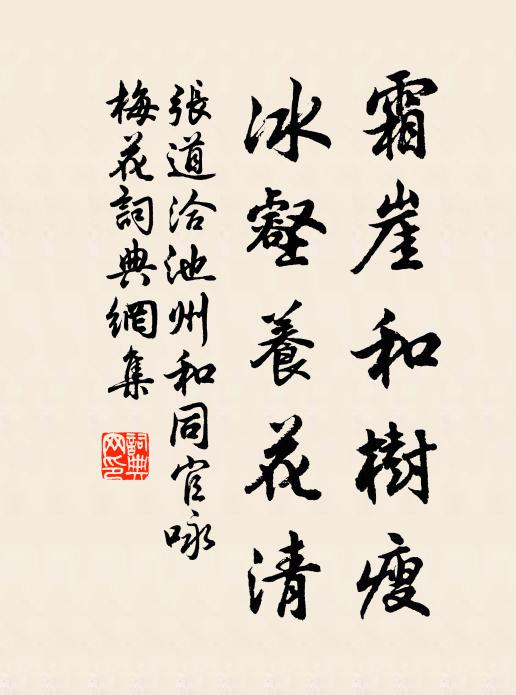 霜崖和樹瘦
冰壑養花清
張道洽池州和同官咏
梅花詞典網集
詞典网印